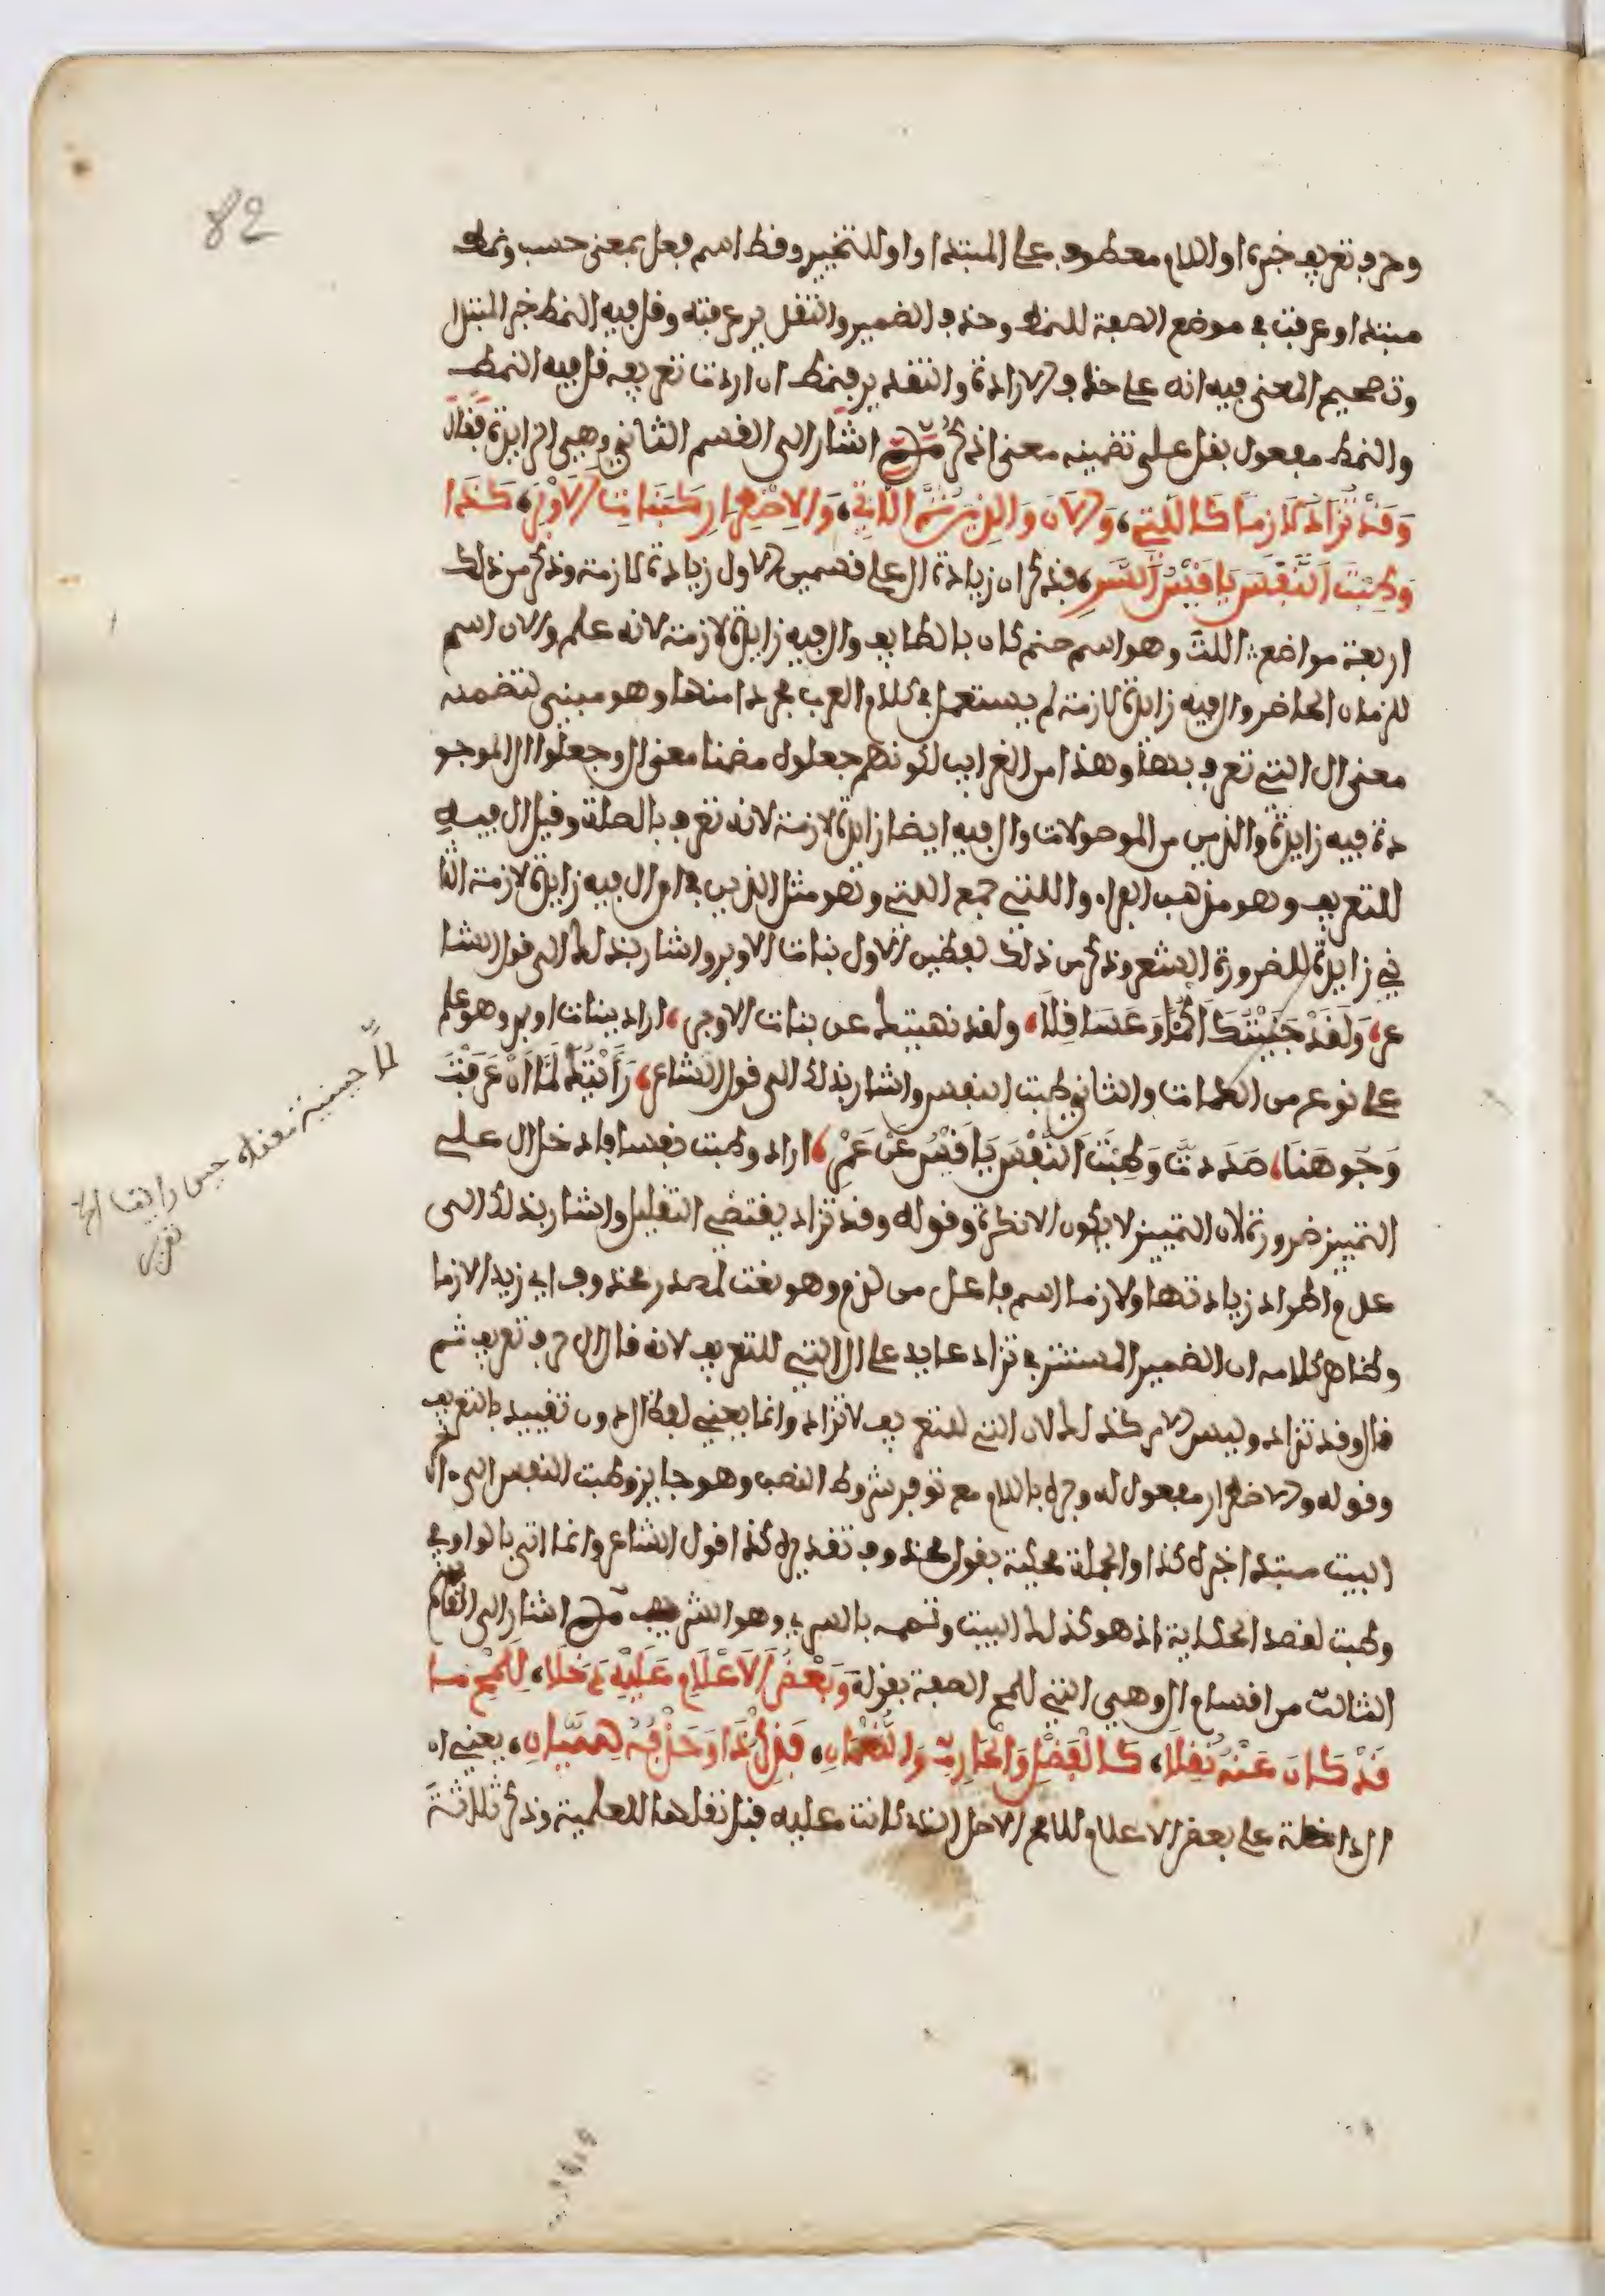 82
وحرف تعريف خبره او اللام معطوف على المبتدا واو للتخيير وفط اسم فعل بمعنى حسب ونمط
مبتدا وعرفت في موضع الصفة للنمط وحذف الضمير والتقدير عرفته وقل فيه النمط خبر المبتدا
وتصحيح المعنى فيه انه على حذف الارادة والتقدير فنمط ان اردت تعريفه قل فيه النمط
والنمط مفعول بقل على تضمينه معنى اذكر ثم اشار الى القسم الثاني وهي الزايدة فقال
وَقَدْ تُزَادُ لَازِمًا كَاللَّتِ، وَالَانَ وَالذِينَ ثُمَّ اللَّاتِي، وَلِاضْطِرَارٍ كَبَنَاتِ الَاوْبَرِ، كَذَا
وَطِبْتَ النَّفْسَ يَا قَيْسُ السَّرِي، فذكر ان زيادة ال على قسمين الاول زيادة لازمة وذكر من ذلك
اربعة مواضع: اللت وهو اسم صنم كان بالطايف وال فيه زايدة لازمة لانه علم والان اسم
للزمان الحاضر وال فيه زايدة لازمة لم يستعمل في كلام العرب مجردا منها وهو مبني لتضمنه
معنى ال التي تعرف بها وهذا من الغرايب لكونهم جعلوه مضمنا معنى ال وجعلوا ال الموجو
دة فيه زايدة والذين من الموصولات وال فيه ايضا زايدة لازمة لانه تعرف بالصلة وقيل ال فيه
للتعريف وهو مذهب الفراء واللتي جمع التي وهو مثل الذين في ان ال فيه زايدة لازمة الثا
ني زايدة للضرورة الشعر وذكر من ذلك لفظين الاول بنات الاوبر واشار بذلك الى قول الشا
عر، وَلَقَدْ جَنَيْتُكَ اَكْمُؤًا وَعَسَاقِلًا، ولقد نهيتك عن بنات الاوبر، اراد بنات اوبر وهو علم
على نوع من الكمات والثاني طبت النفس واشار بذلك الى قول الشاعر، رَأَيْتُكَ لَمَّا اَنْ عَرَفْتَ
وُجُوهَنَا، صَدَدتَّ وَطِبْتَ النَّفْسَ يَا قَيْسُ عَنْ عَمْرِ، اراد وطبت نفسا فادخل ال على
التمييز ضرورة لان التمييز لا يكون الا نكرة وقوله وقد تزاد يقتضي التقليل واشار بذلك الى
عدم اطراد زيادتها ولازما اسم فاعل من لزم وهو نعت لمصدر محذوف اي زيدا لازما
وظاهر كلامه ان الضمير المستتر في تزاد عايد على ال التي للتعريف لانه قال ال حرف تعريف ثم
قال وقد تزاد وليس الامر كذلك لان التي للتعريف لا تزاد وانما يعني لفظ ال دون تقييد بالتعريف
وقوله ولاضطرار مفعول له وجره باللام مع توفر شروط النصب وهو جايز وطبت النفس الى اخر
البيت مبتدا خبره كذا والجملة محكية بقول محذوف تقديره كذا قول الشاعر وانما اتى بالواو في
وطبت لقصد الحكاية اذ هو كذلك في البيت وتممه بالسري وهو الشريف ثم اشار الى القسم
الثالث من اقسام ال وهي التي للمح الصفة بقوله وَبَعْضُ الَاعْلَامِ عَلَيْهِ دَخَلَا، لِلَمْحِ مَا
قَدْ كَانَ عَنْهُ نُقِلَا، كَالْفَضْلِ وَالْحَارِثِ وَالنُّعْمَانِ، فَذِكْرُ ذَا وَحَذْفُهُ سِيَّانِ، يعني ان
ال الداخلة على بعض الاعلام للمح الاصل الذي كانت عليه قبل نقلها للعلمية وذكر ثلاثة